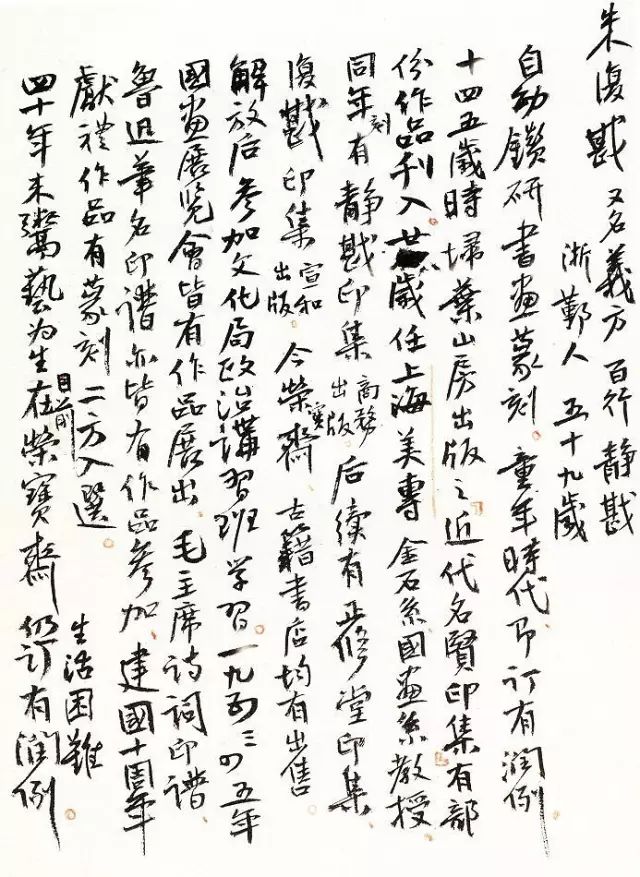 朱復戡 又名義方 百行 静戡
浙鄞人 五十九歲
自幼鑽研書畫篆刻 童年時代即订有潤例
十四五歲時掃葉山房出版之近代名賢印集有部
份作品刊入 廿歲任上海美專金石系國畫系教授
同年有刻静戡印集 商務出版 后续有正修堂印集
復戡印集 宣和出版 今榮寶齋 古籍書店均有出售
解放后参加文化局政治講習班学習 一九五三四五年
國畫展览會皆有作品展出 毛主席诗词印谱
魯迅筆名印谱亦皆有作品参加 建國十周年
獻禮作品有篆刻二方入選
生活困難
四十年来鬻藝为生 目前在榮寶齋仍订有润例